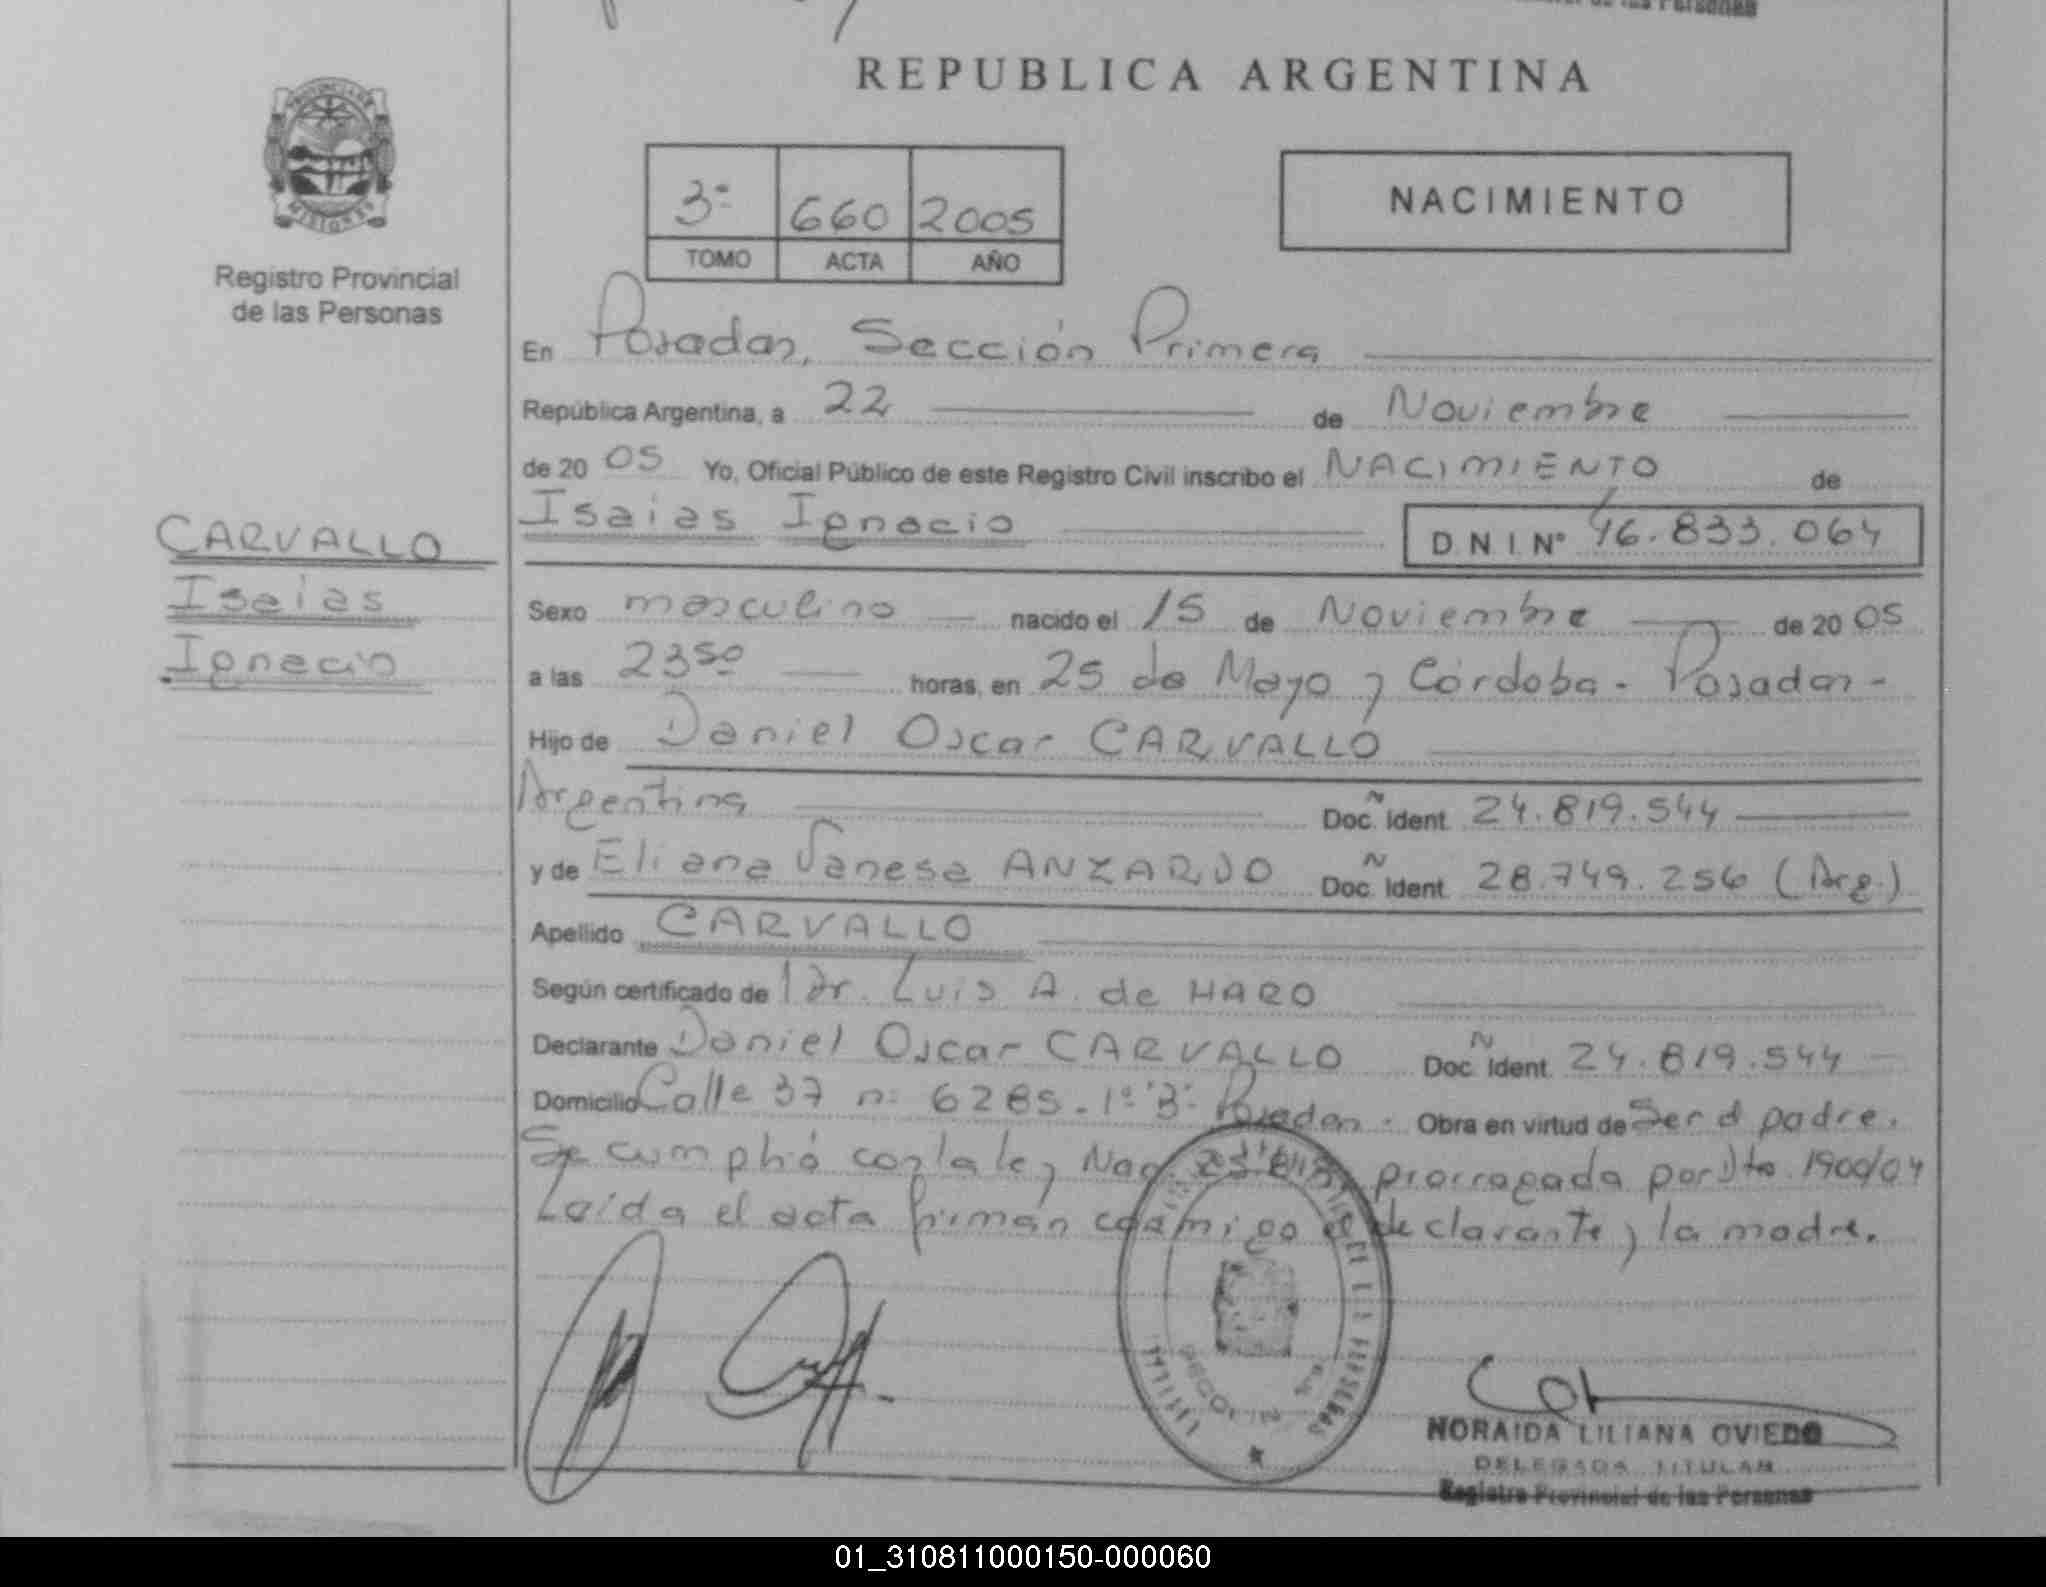 de las Personas
REPUBLICA ARGENTINA
PROVINCIA DE
MISIONES
Registro Provincial
de las Personas
3º 660 2005
TOMO ACTA AÑO
NACIMIENTO
En Posadas, Sección Primera
República Argentina, a 22 de Noviembre
de 20 05 Yo, Oficial Público de este Registro Civil inscribo el NACIMIENTO de
Isaias Ignacio D N I Nº 46.833.064
CARVALLO
Isaias
Ignacio
Sexo masculino nacido el 15 de Noviembre de 20 05
a las 23 50 horas, en 25 de Mayo y Córdoba - Posadas -
Hijo de Daniel Oscar CARVALLO
Argentina Doc. Ident. 24.819.544
y de Eliana Vanesa ANZARDO Doc. Ident. 28.749.256 (Arg.)
Apellido CARVALLO
Según certificado de Dr. Luis A. de HARO
Declarante Daniel Oscar CARVALLO Doc. Ident. 24.819.544
Domicilio Calle 37 nº 6285. 1º "B" Posadas. Obra en virtud de Ser el padre.
Se cumplió con la ley Nac. prorrogada por Dto. 1900/04
Leída el acta firman conmigo el declarante y la madre.
DE LAS PERSONAS
NORAIDA LILIANA OVIEDO
DELEGADA TITULAR
Registro Provincial de las Personas
01_310811000150-000060